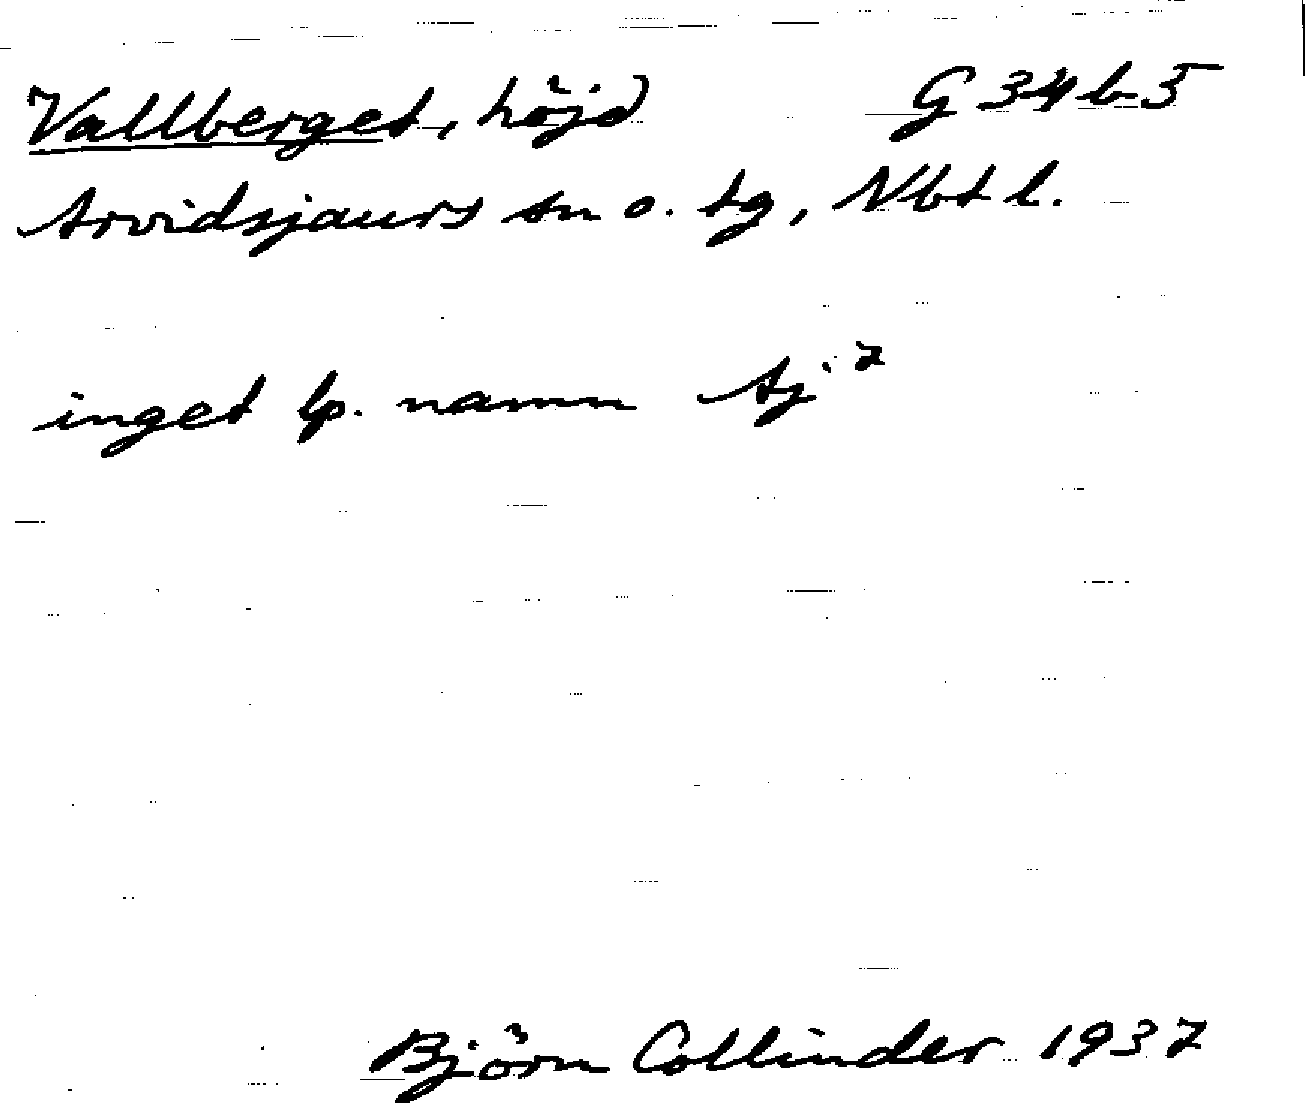 Vallberget, höjd G 34 b 5
Arvidsjaurs sn o. tg, Nbt l.
inget lp. namn Aj 7
Björn Collinder 1937